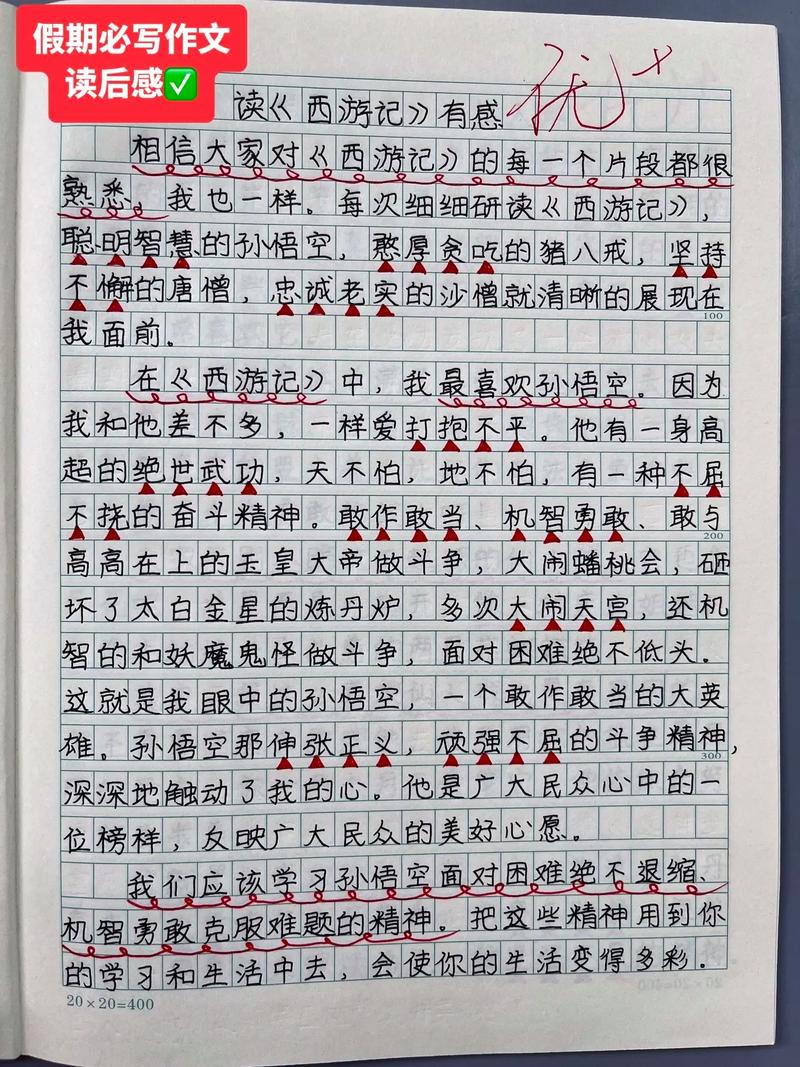 假期必写作文
读后感✅
读《西游记》有感
优+
相信大家对《西游记》的每一个片段都很
熟悉，我也一样。每次细细研读《西游记》，
聪明智慧的孙悟空，憨厚贪吃的猪八戒，坚持
不懈的唐僧，忠诚老实的沙僧就清晰的展现在
100
我面前。
在《西游记》中，我最喜欢孙悟空。因为
我和他差不多，一样爱打抱不平。他有一身高
超的绝世武功，天不怕，地不怕，有一种不屈
不挠的奋斗精神。敢作敢当、机智勇敢、敢与
200
高高在上的玉皇大帝做斗争，大闹蟠桃会，砸
坏了太白金星的炼丹炉，多次大闹天宫，还机
智的和妖魔鬼怪做斗争，面对困难绝不低头．
这就是我眼中的孙悟空，一个敢作敢当的大英
雄。孙悟空那伸张正义，顽强不屈的斗争精神，
300
深深地触动了我的心。他是广大民众心中的一
位榜样，反映广大民众的美好心愿。
我们应该学习孙悟空面对困难绝不退缩、
机智勇敢克服难题的精神。把这些精神用到你
的学习和生活中去，会使你的生活变得多彩．
20×20=400